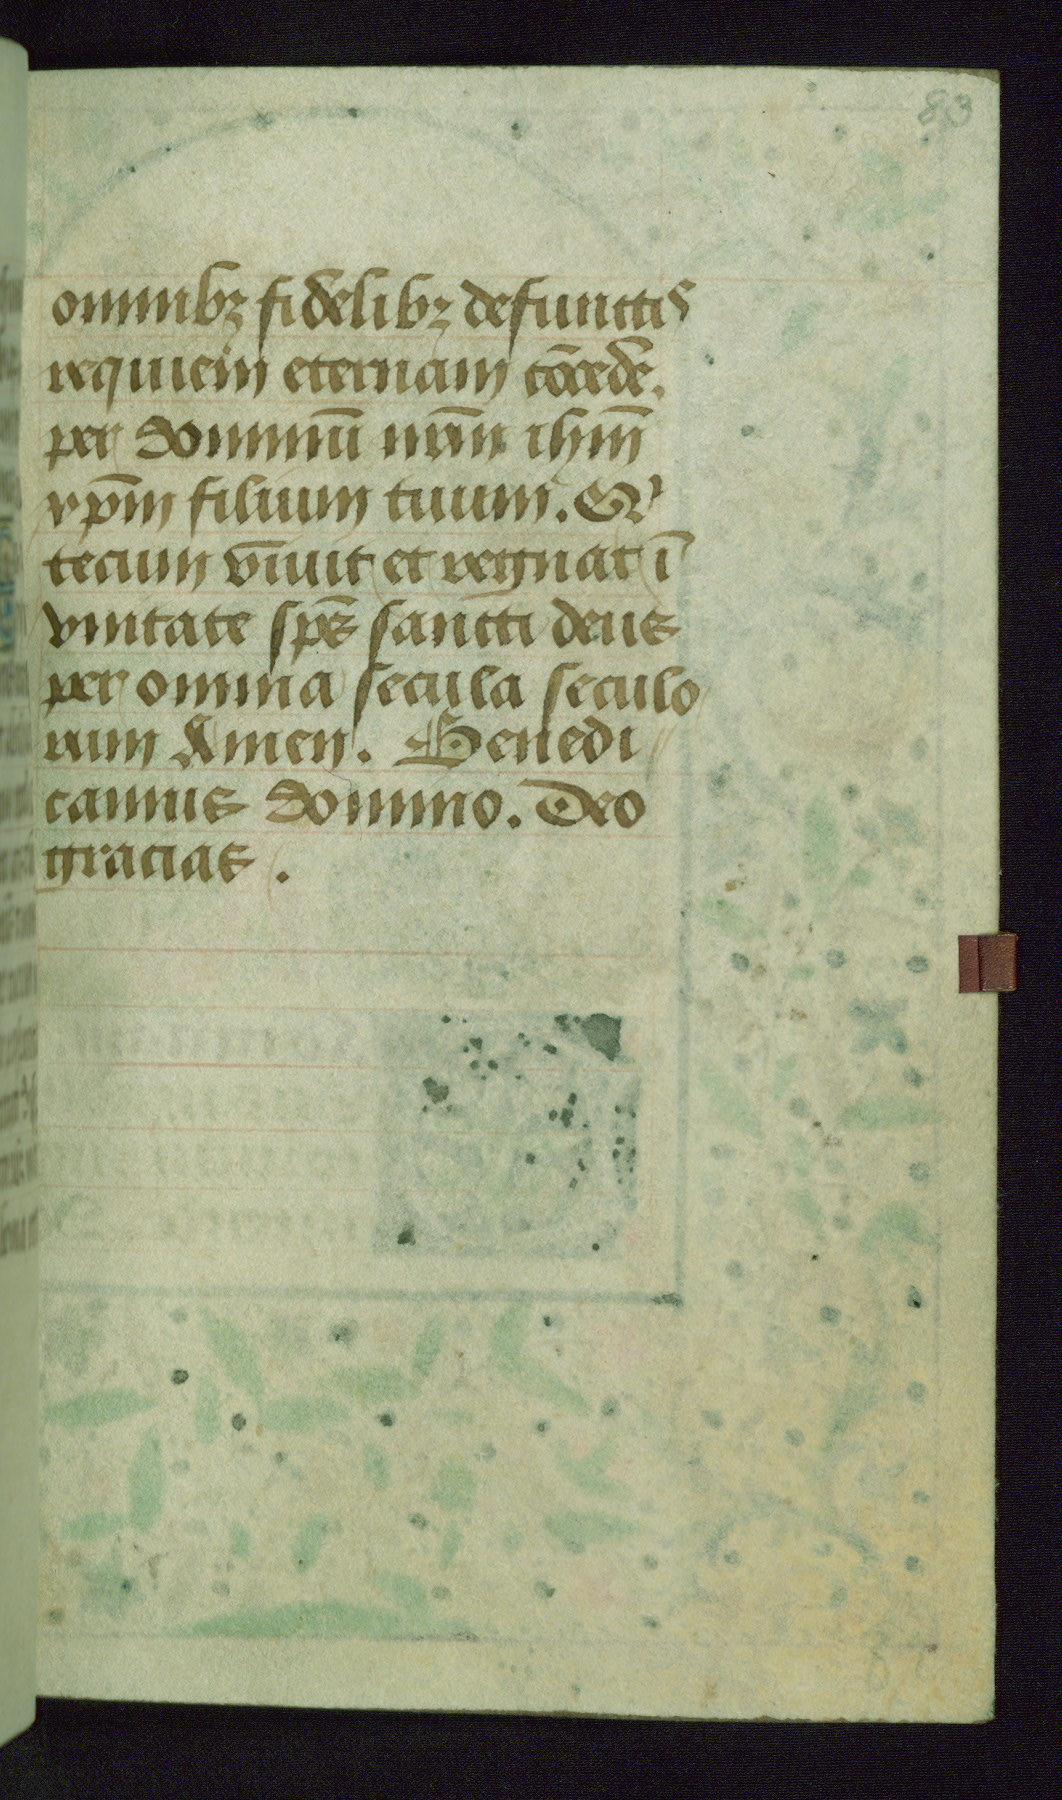 83
omnibꝫ fidelibꝫ defunctis
requiem eternam cōcede.
per dominū nr̄m ihm̄
xp̄m filium tuum. Qͥ
tecum viuit et regnat ī
vnitate sp̄s sancti deus
per omnia secula seculo
rum Amen. Benedi
camus domino. Deo
gracias.